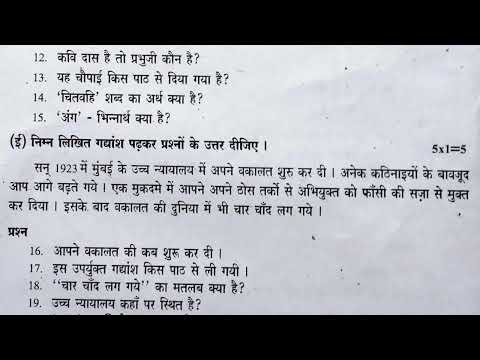 12. कवि दास है तो प्रभुजी कौन है?
13. यह चौपाई किस पाठ से दिया गया है?
14. ‘चितवहि’ शब्द का अर्थ क्या है?
15. ‘अंग’ - भिन्नार्थ क्या है?
(ई) निम्न लिखित गद्यांश पढ़कर प्रश्नों के उत्तर दीजिए। 5x1=5
सन् 1923 में मुंबई के उच्च न्यायालय में अपने वकालत शुरु कर दी। अनेक कठिनाइयों के बावजूद
आप आगे बढ़ते गये। एक मुकदमे में आपने अपने ठोस तर्कों से अभियुक्त को फाँसी की सज़ा से मुक्त
कर दिया। इसके बाद वकालत की दुनिया में भी चार चाँद लग गये।
प्रश्न
16. आपने वकालत की कब शुरू कर दी।
17. इस उपर्युक्त गद्यांश किस पाठ से ली गयी।
18. ‘‘चार चाँद लग गये’’ का मतलब क्या है?
19. उच्च न्यायालय कहाँ पर स्थित है?